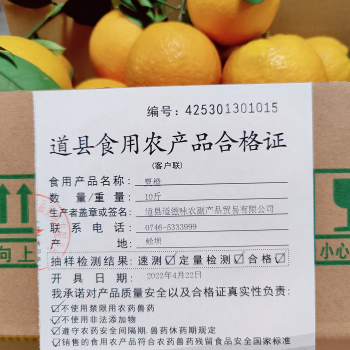 编号：425301301015
道县食用农产品合格证
（客户联）
食用产品名称：夏橙
数量/重量：10斤
生产者盖章或签名：道县道滋味农副产品贸易有限公司
联系电话：0746-5333999
产地：蚣坝
抽样检测结果：速测☑定量检测☑合格☑
开具日期：2022年4月22日
我承诺对产品质量安全以及合格证真实性负责：
☑不使用禁限用农药兽药
☑不使用非法添加物
☑遵守农药安全间隔期、兽药休药期规定
☑销售的食用农产品符合农药兽药残留食品安全国家标准
向上
小心